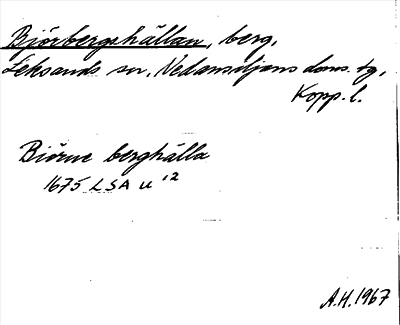 Björbergshällan, berg,
Leksands sn, Nedansiljans doms. tg,
Kopp. l.
Biörne berghälla
1675 LSA U 12
A.H. 1967